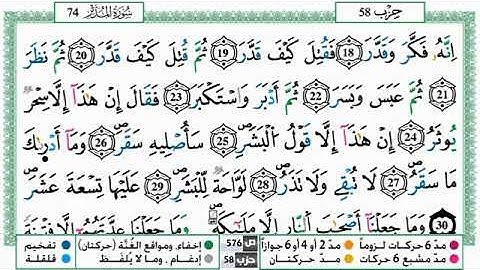 سُورَةُ المُدَّثِّر 74
حِزْب 58
إِنَّهُۥ فَكَّرَ وَقَدَّرَ 18 فَقُتِلَ كَيْفَ قَدَّرَ 19 ثُمَّ قُتِلَ كَيْفَ قَدَّرَ 20 ثُمَّ نَظَرَ
21 ثُمَّ عَبَسَ وَبَسَرَ 22 ثُمَّ أَدْبَرَ وَاسْتَكْبَرَ 23 فَقَالَ إِنْ هَٰذَآ إِلَّا سِحْرٌ
يُوثَرُ 24 إِنْ هَٰذَآ إِلَّا قَوْلُ الْبَشَرِ 25 سَأُصْلِيهِ سَقَرَ 26 وَمَآ أَدْرَىٰكَ
مَا سَقَرُ 27 لَا تُبْقِي وَلَا تَذَرُ 28 لَوَّاحَةٌ لِّلْبَشَرِ 29 عَلَيْهَا تِسْعَةَ عَشَرَ
30 وَمَا جَعَلْنَآ أَصْحَٰبَ النَّارِ إِلَّا مَلَٰٓئِكَةً وَمَا جَعَلْنَا عِدَّتَهُمُۥٓ إِلَّا فِتْنَةً
مدّ 6 حركات لزوماً مدّ 2 أو 4 أو 6 جوازاً ص 576 إخفاء، ومواقع الغُنَّة (حركتان) تفخيم
مدّ مشبع 6 حركات مدّ حركتان حزب 58 إدغام، وما لا يُلفَظ قلقلة